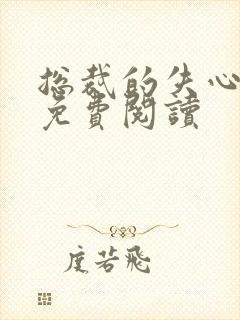 总裁的失心
免費閱讀
度若飛